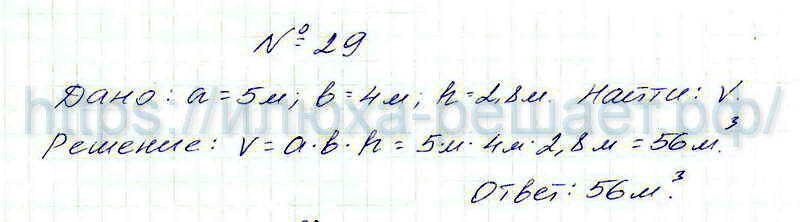 № 29
Дано: a = 5м; b = 4м; h = 2,8м. Найти: V.
https://илюха-решает.рф/
Решение: V = a·b·h = 5м·4м·2,8м = 56м.³
Ответ: 56м.³